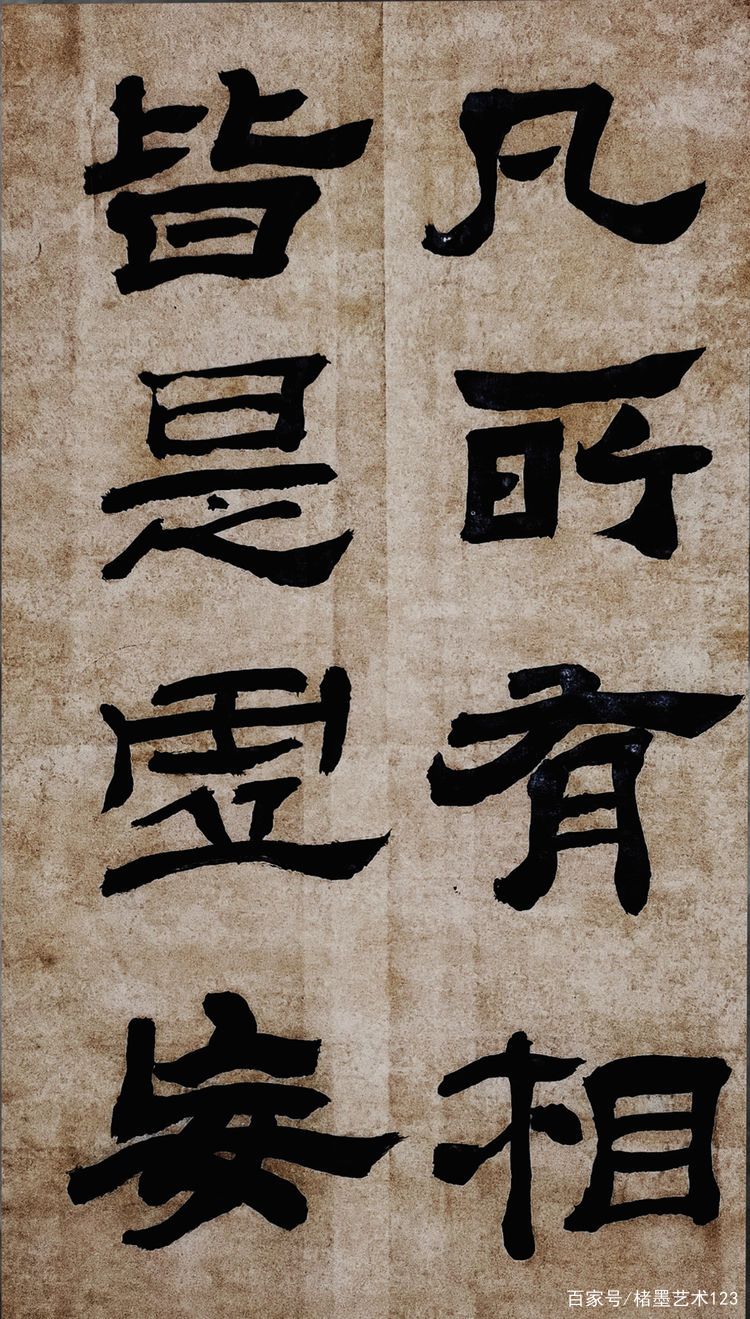 凡所有相
皆是虚妄
百家号/楮墨艺术123